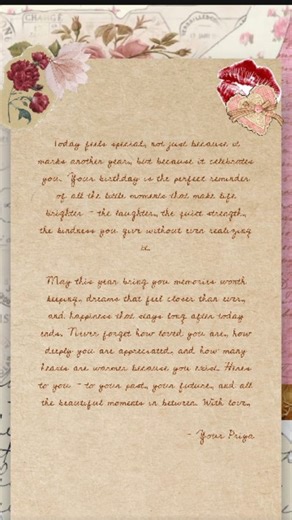 Today feels special, not just because it
marks another year, but because it celebrates
you. Your birthday is the perfect reminder
of all the little moments that make life
brighter - the laughter, the quiet strength,
the kindness you give without even realizing
it.
May this year bring you memories worth
keeping, dreams that feel closer than ever,
and happiness that stays long after today
ends. Never forget how loved you are, how
deeply you are appreciated, and how many
hearts are warmer because you exist. Heres
to you - to your past, your future, and all
the beautiful moments in between. With love,
- Your Priya